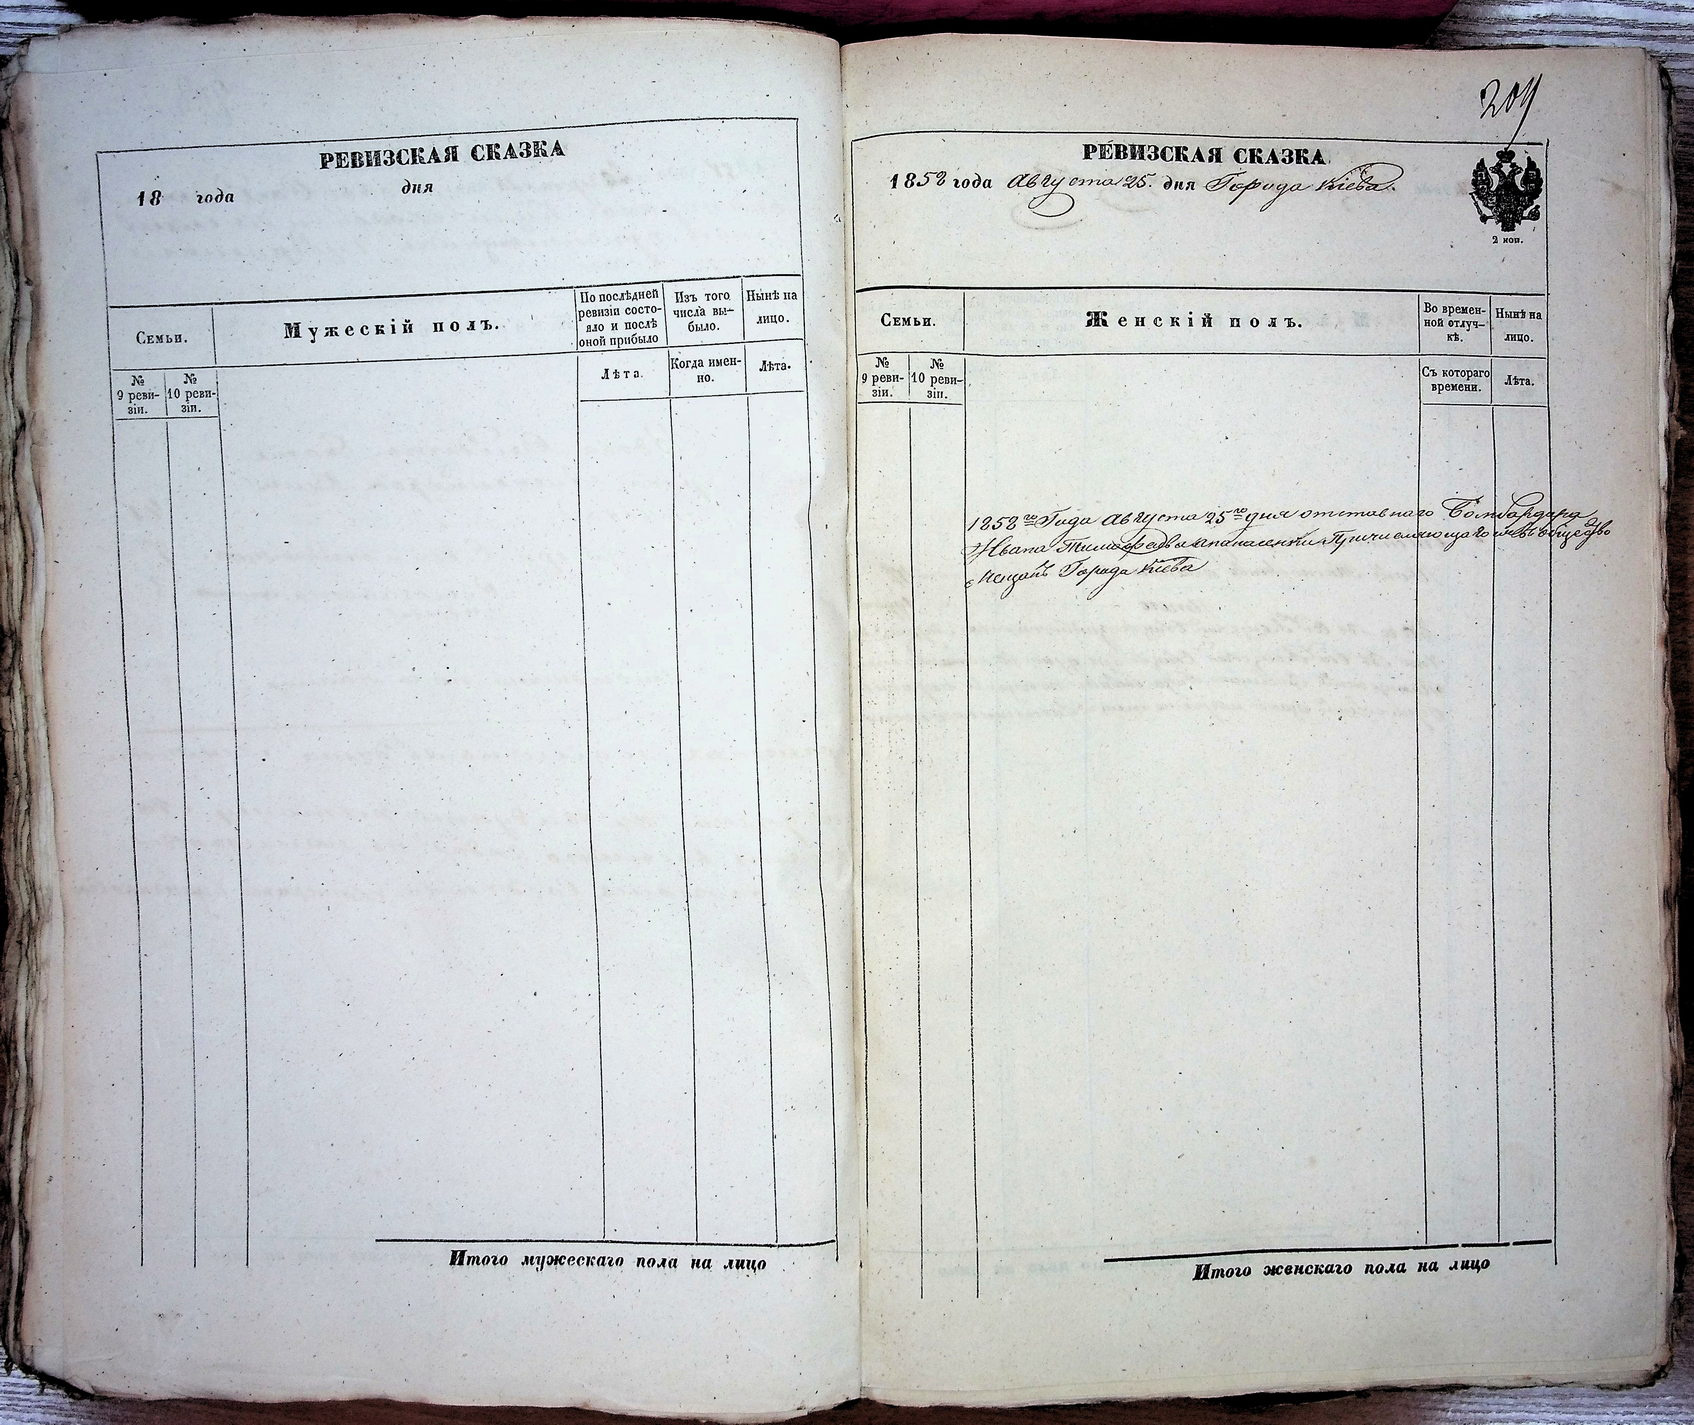 РЕВИЗСКАЯ СКАЗКА
18 года дня
Семьи.
Мужескій полъ.
По послѣдней ревизіи состояло и послѣ оной прибыло
Изъ того числа выбыло.
Нынѣ на лицо.
№ 9 ревизіи.
№ 10 ревизіи.
Лѣта.
Когда именно.
Лѣта.
Итого мужескаго пола на лицо
209
РЕВИЗСКАЯ СКАЗКА.
1858 года Августа 25. дня Города Кіева.
2 коп.
Семьи.
Женскій полъ.
Во временной отлучкѣ.
Нынѣ на лицо.
№ 9 ревизіи.
№ 10 ревизіи.
Съ котораго времени.
Лѣта.
1858го Года Августа 25го дня отставнаго Бомбардира
Ивана Тимофеева Причисляющагося въ общество
мещанъ Города Кіева
Итого женскаго пола на лицо